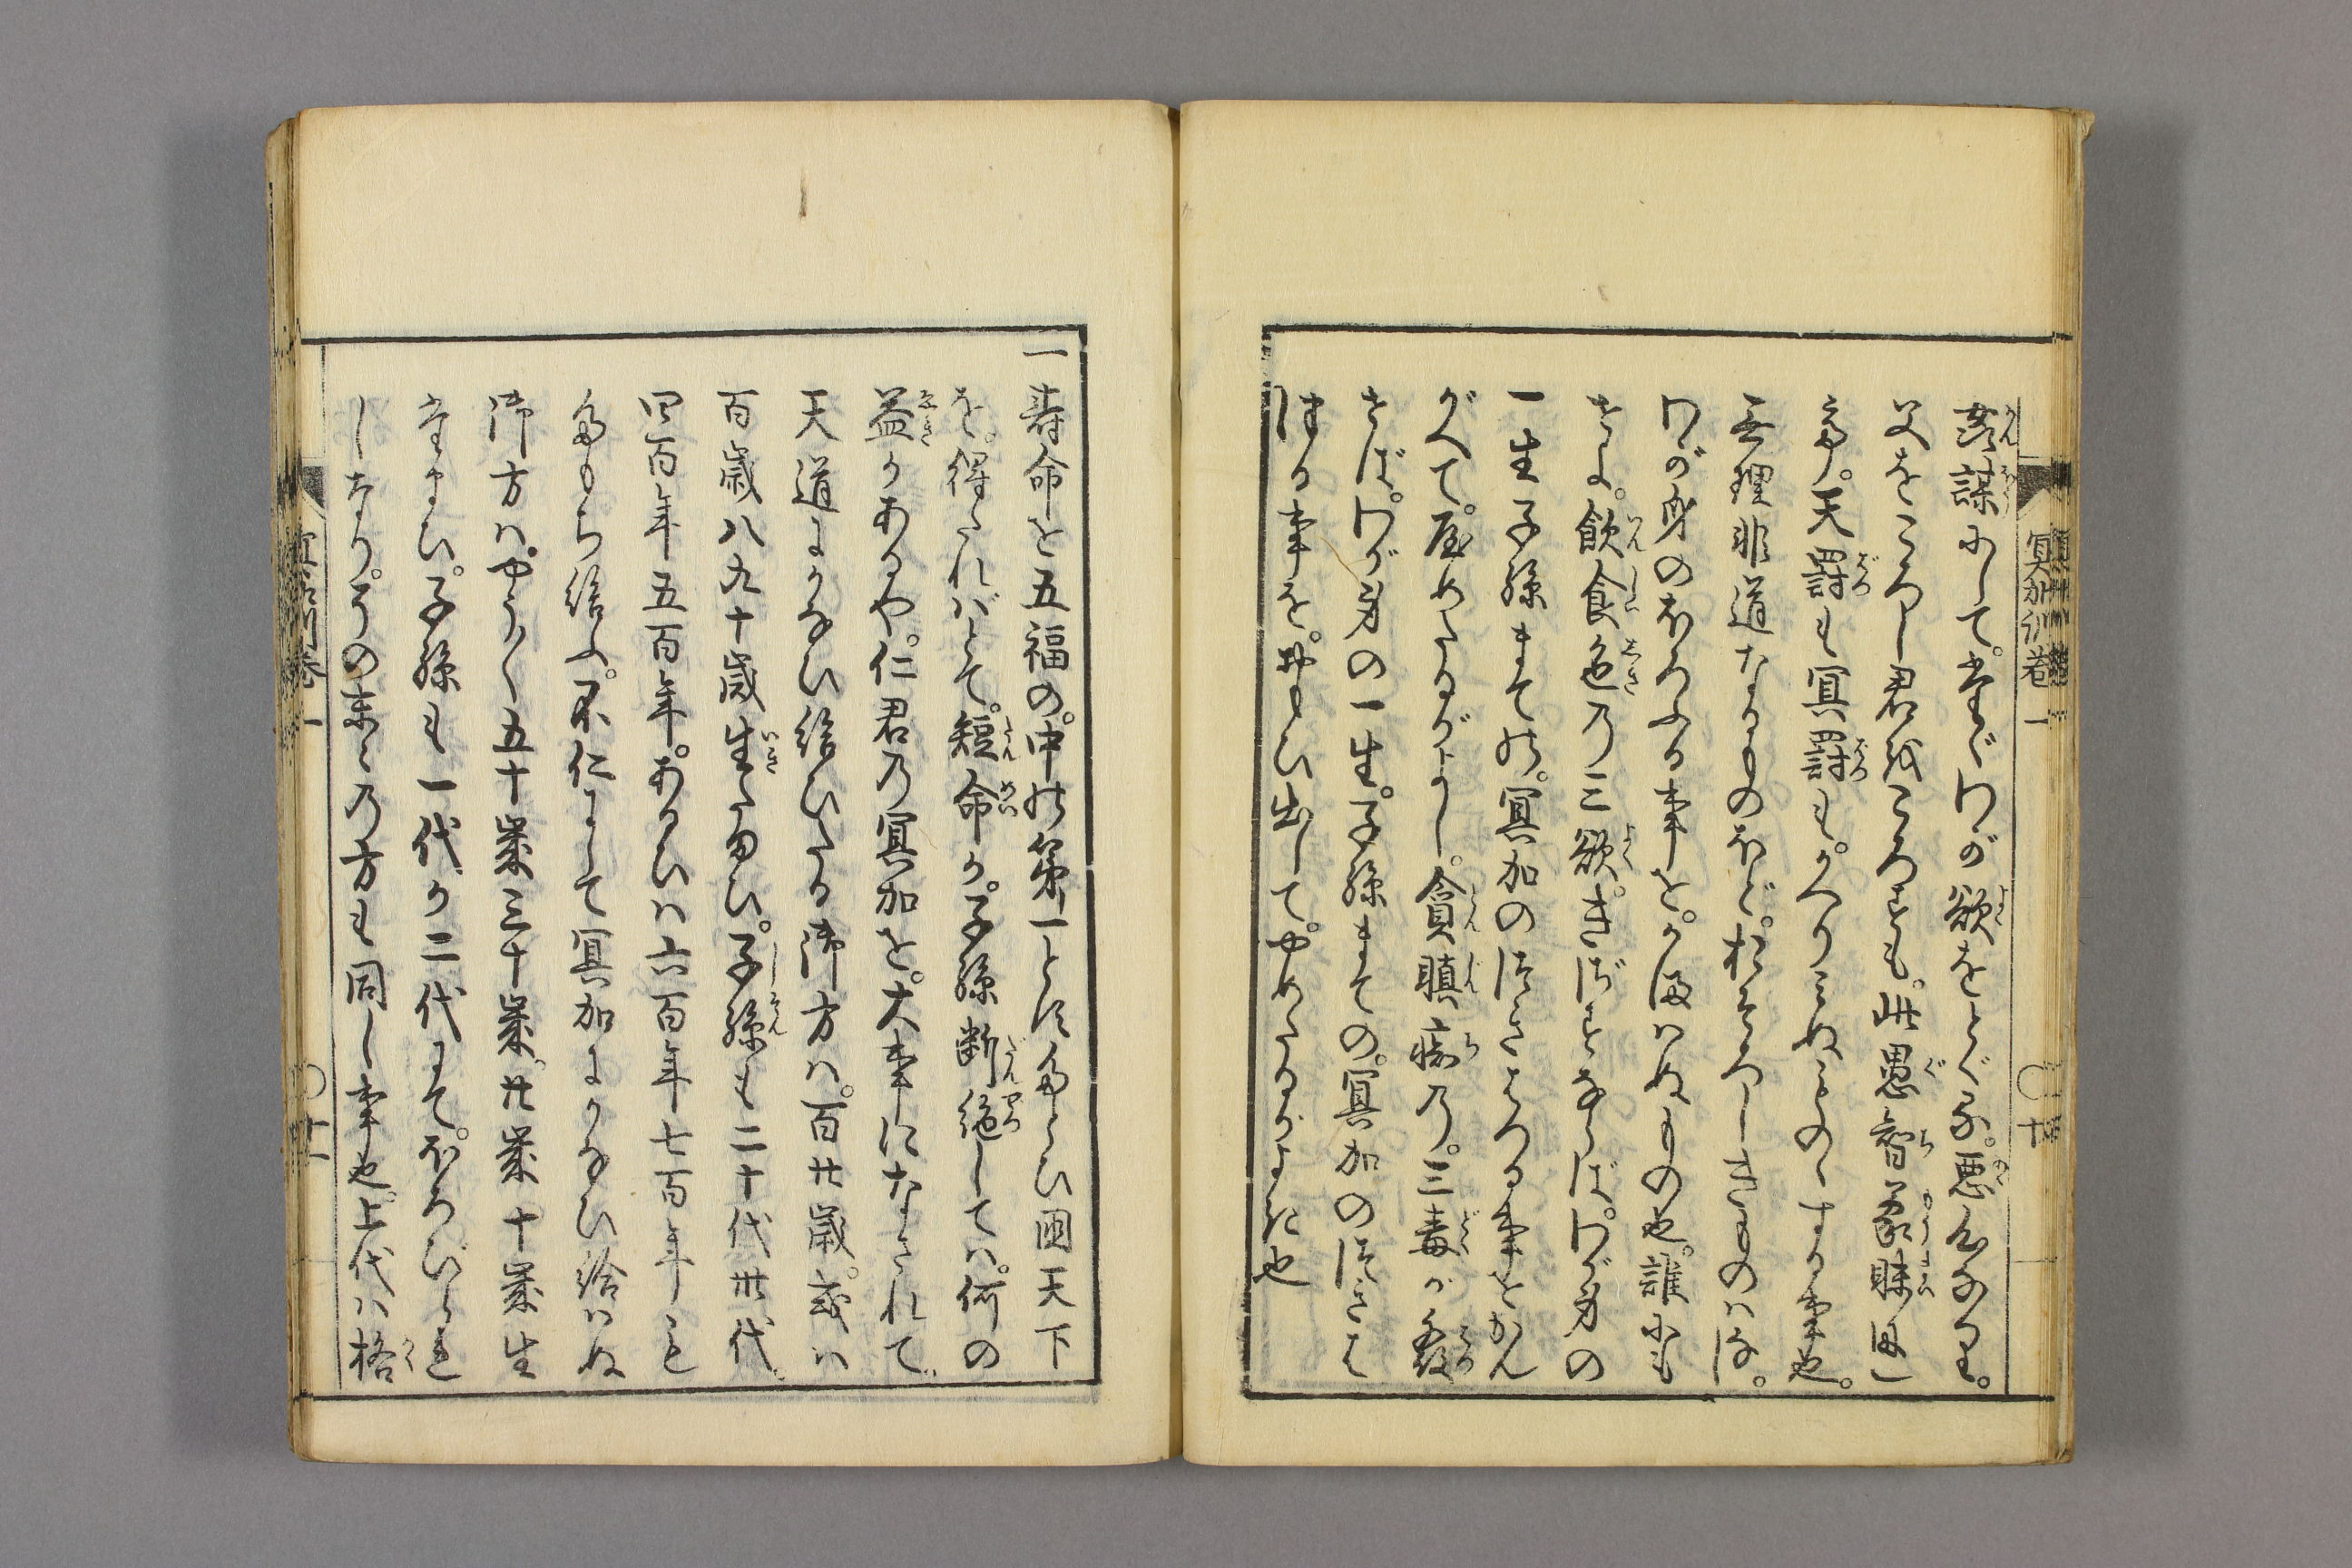 冥加訓巻一 〇十
姦謀にして。たゞわが欲をとぐる。悪人なりと。
父をころし君をころすも。此愚智蒙昧
天罸も冥罸も。かへりミぬものゝする事也。
無理非道なるものほど。おそろしきものハなし。
わが身のほろふる事を。かまハぬもの也。誰にも
せよ。飲食色の三欲。きざすならば。わが身の
一生子孫まての。冥加のつきはつる事をかん
がへて。屋めたるがよし。貪瞋痴の。三毒が發
さば。わが身の一生。子孫まての。冥加のつきは
つる事を。おもひ出して。やめたるがよき也
一寿命を五福の。中の第一とす。たとひ国天下
を。得たればとて。短命か。子孫断絶してハ。何の
益かあるや。仁君の冥加を。大事になされて。
天道にかなひ給ひたる御方ハ。百廿歳。或ハ
百歳八九十歳生たまひ。子孫も二十代卅代
四百年五百年。あるひハ六百年七百年も
たもち給ふ。不仁にして冥加にかなひ給ハぬ
御方ハ。やう〱五十歳三十歳。廿歳十歳生
たまひ。子孫も一代か二代にて。ほろびられ
しなり。その末〻の方も同し事也。上代ハ格
冥加訓巻一 〇十一